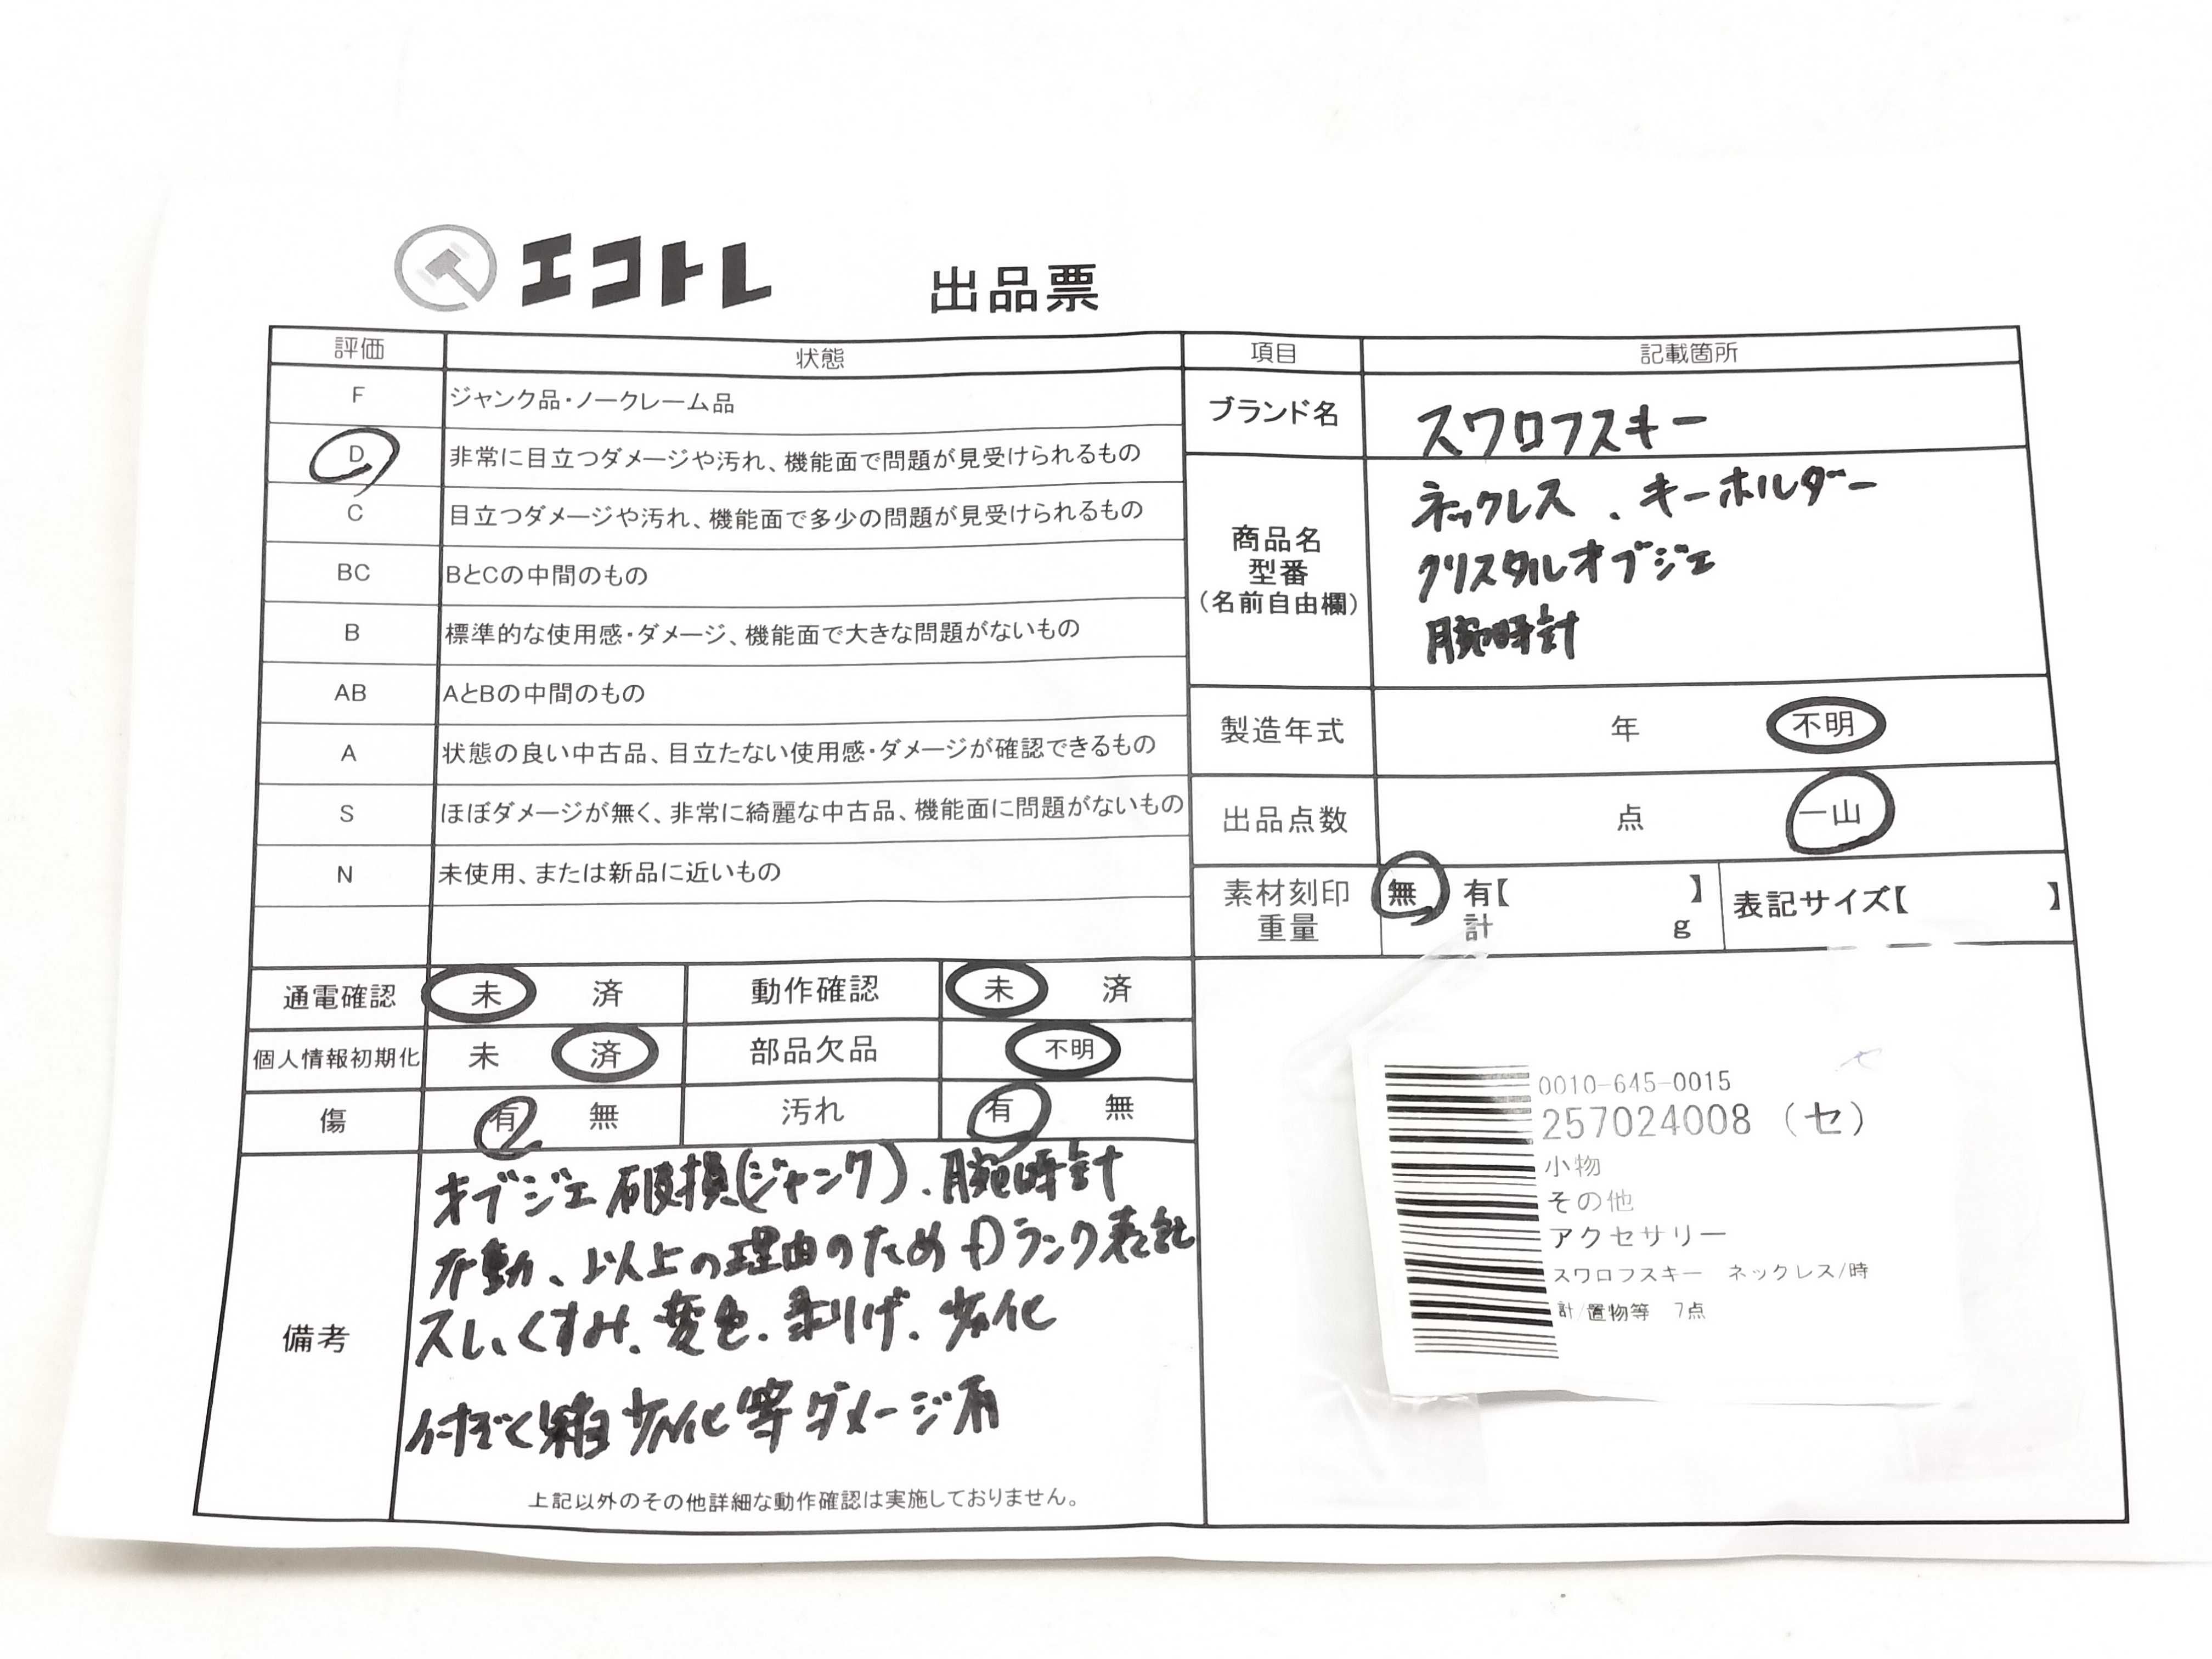 エコトレ 出品票
評価 状態
F ジャンク品・ノークレーム品
D 非常に目立つダメージや汚れ、機能面で問題が見受けられるもの
C 目立つダメージや汚れ、機能面で多少の問題が見受けられるもの
BC BとCの中間のもの
B 標準的な使用感・ダメージ、機能面で大きな問題がないもの
AB AとBの中間のもの
A 状態の良い中古品、目立たない使用感・ダメージが確認できるもの
S ほぼダメージが無く、非常に綺麗な中古品、機能面に問題がないもの
N 未使用、または新品に近いもの
通電確認 未 済 動作確認 未 済
個人情報初期化 未 済 部品欠品 不明
傷 有 無 汚れ 有 無
備考
オブジェ破損(ジャンク)、腕時計
不動、以上の理由のためDランク表記
スレ、くすみ、変色、剥げ、劣化
付ぞく箱劣化等ダメージ有
上記以外のその他詳細な動作確認は実施しておりません。
項目 記載箇所
ブランド名 スワロフスキー
商品名
型番
(名前自由欄)
ネックレス、キーホルダー
クリスタルオブジェ
腕時計
製造年式 年 不明
出品点数 点 一山
素材刻印 無 有【 】
重量 計 g
表記サイズ【 】
0010-645-0015
257024008 (セ)
小物
その他
アクセサリー
スワロフスキー ネックレス/時
計/置物等 7点